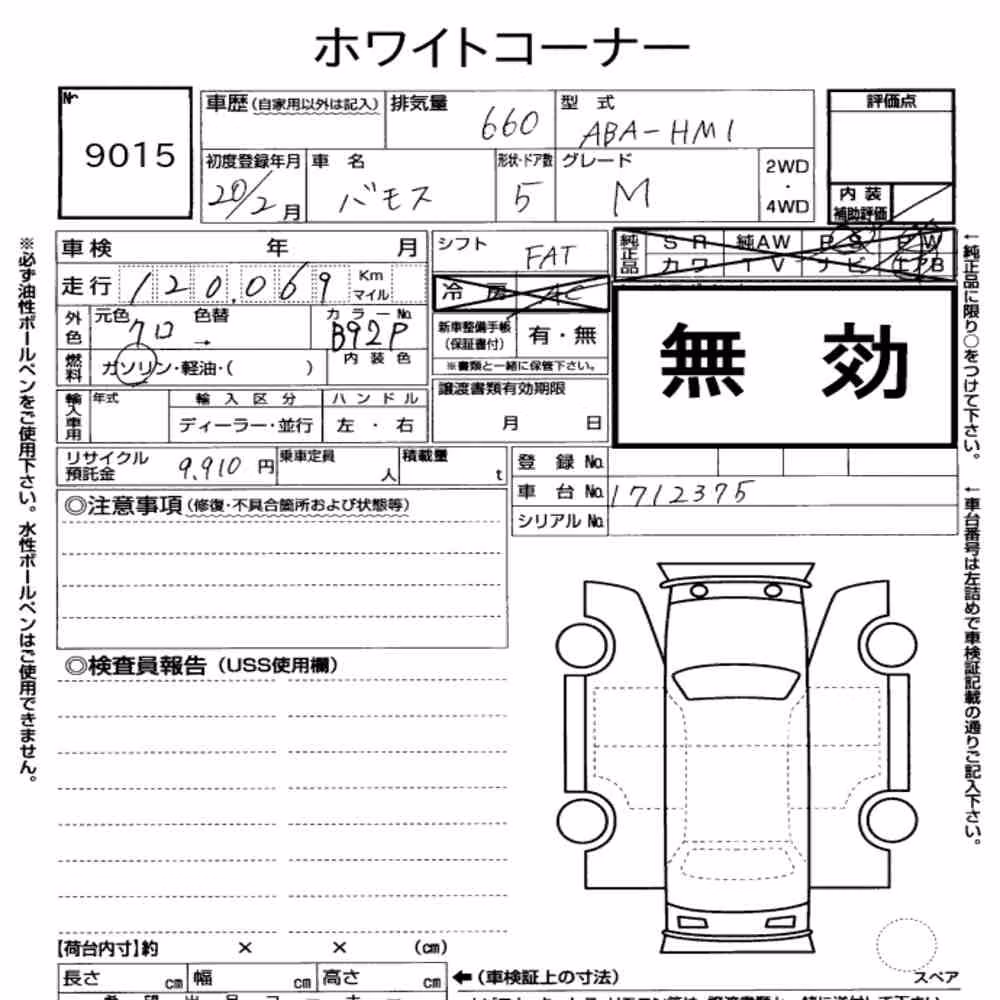 ホワイトコーナー
No. 9015
車歴(自家用以外は記入) 排気量 660 型 式 ABA-HM1
評価点
初度登録年月 20/2月 車 名 バモス 形状・ドア数 5 グレード M 2WD・4WD
内 装 補助評価
車 検 年 月
シフト FAT
純正品 SR 純AW PS PW
カワ TV ナビ エアB
走 行 120,069 Km マイル
冷 房 AC
外色 元色 クロ 色替 → カラーNo. B92P
新車整備手帳(保証書付) 有・無
無 効
燃料 ガソリン・軽油・( ) 内 装 色
※書類と一緒に保管下さい。
輸入車用 年式 輸 入 区 分 ハ ン ド ル
ディーラー・並行 左 ・ 右
譲渡書類有効期限
月 日
リサイクル預託金 9,910 円 乗車定員 人 積載量 t
登 録 No.
車 台 No. 1712375
シリアル No.
◎注意事項(修復・不具合箇所および状態等)
◎検査員報告(USS使用欄)
【荷台内寸】約 × × (cm)
長さ cm 幅 cm 高さ cm ←(車検証上の寸法)
スペア
※必ず油性ボールペンをご使用下さい。水性ボールペンはご使用できません。
←純正品に限り○をつけて下さい。
←車台番号は左詰めで車検証記載の通りご記入下さい。